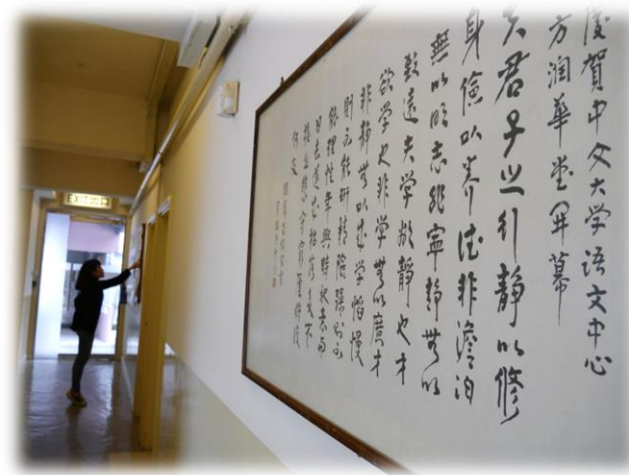 慶賀中文大学语文中心
方润華堂開幕
夫君子之行静以修
身儉以养德非澹泊
無以明志非寧静無以
致遠夫学欲静也才
欲学也非学無以廣才
非静無以成学慆慢
則不能研精險躁則不
能理性年與時馳志与
日去遂成枯落多不
接世悲守窮廬將復
何及
EXIT 出口